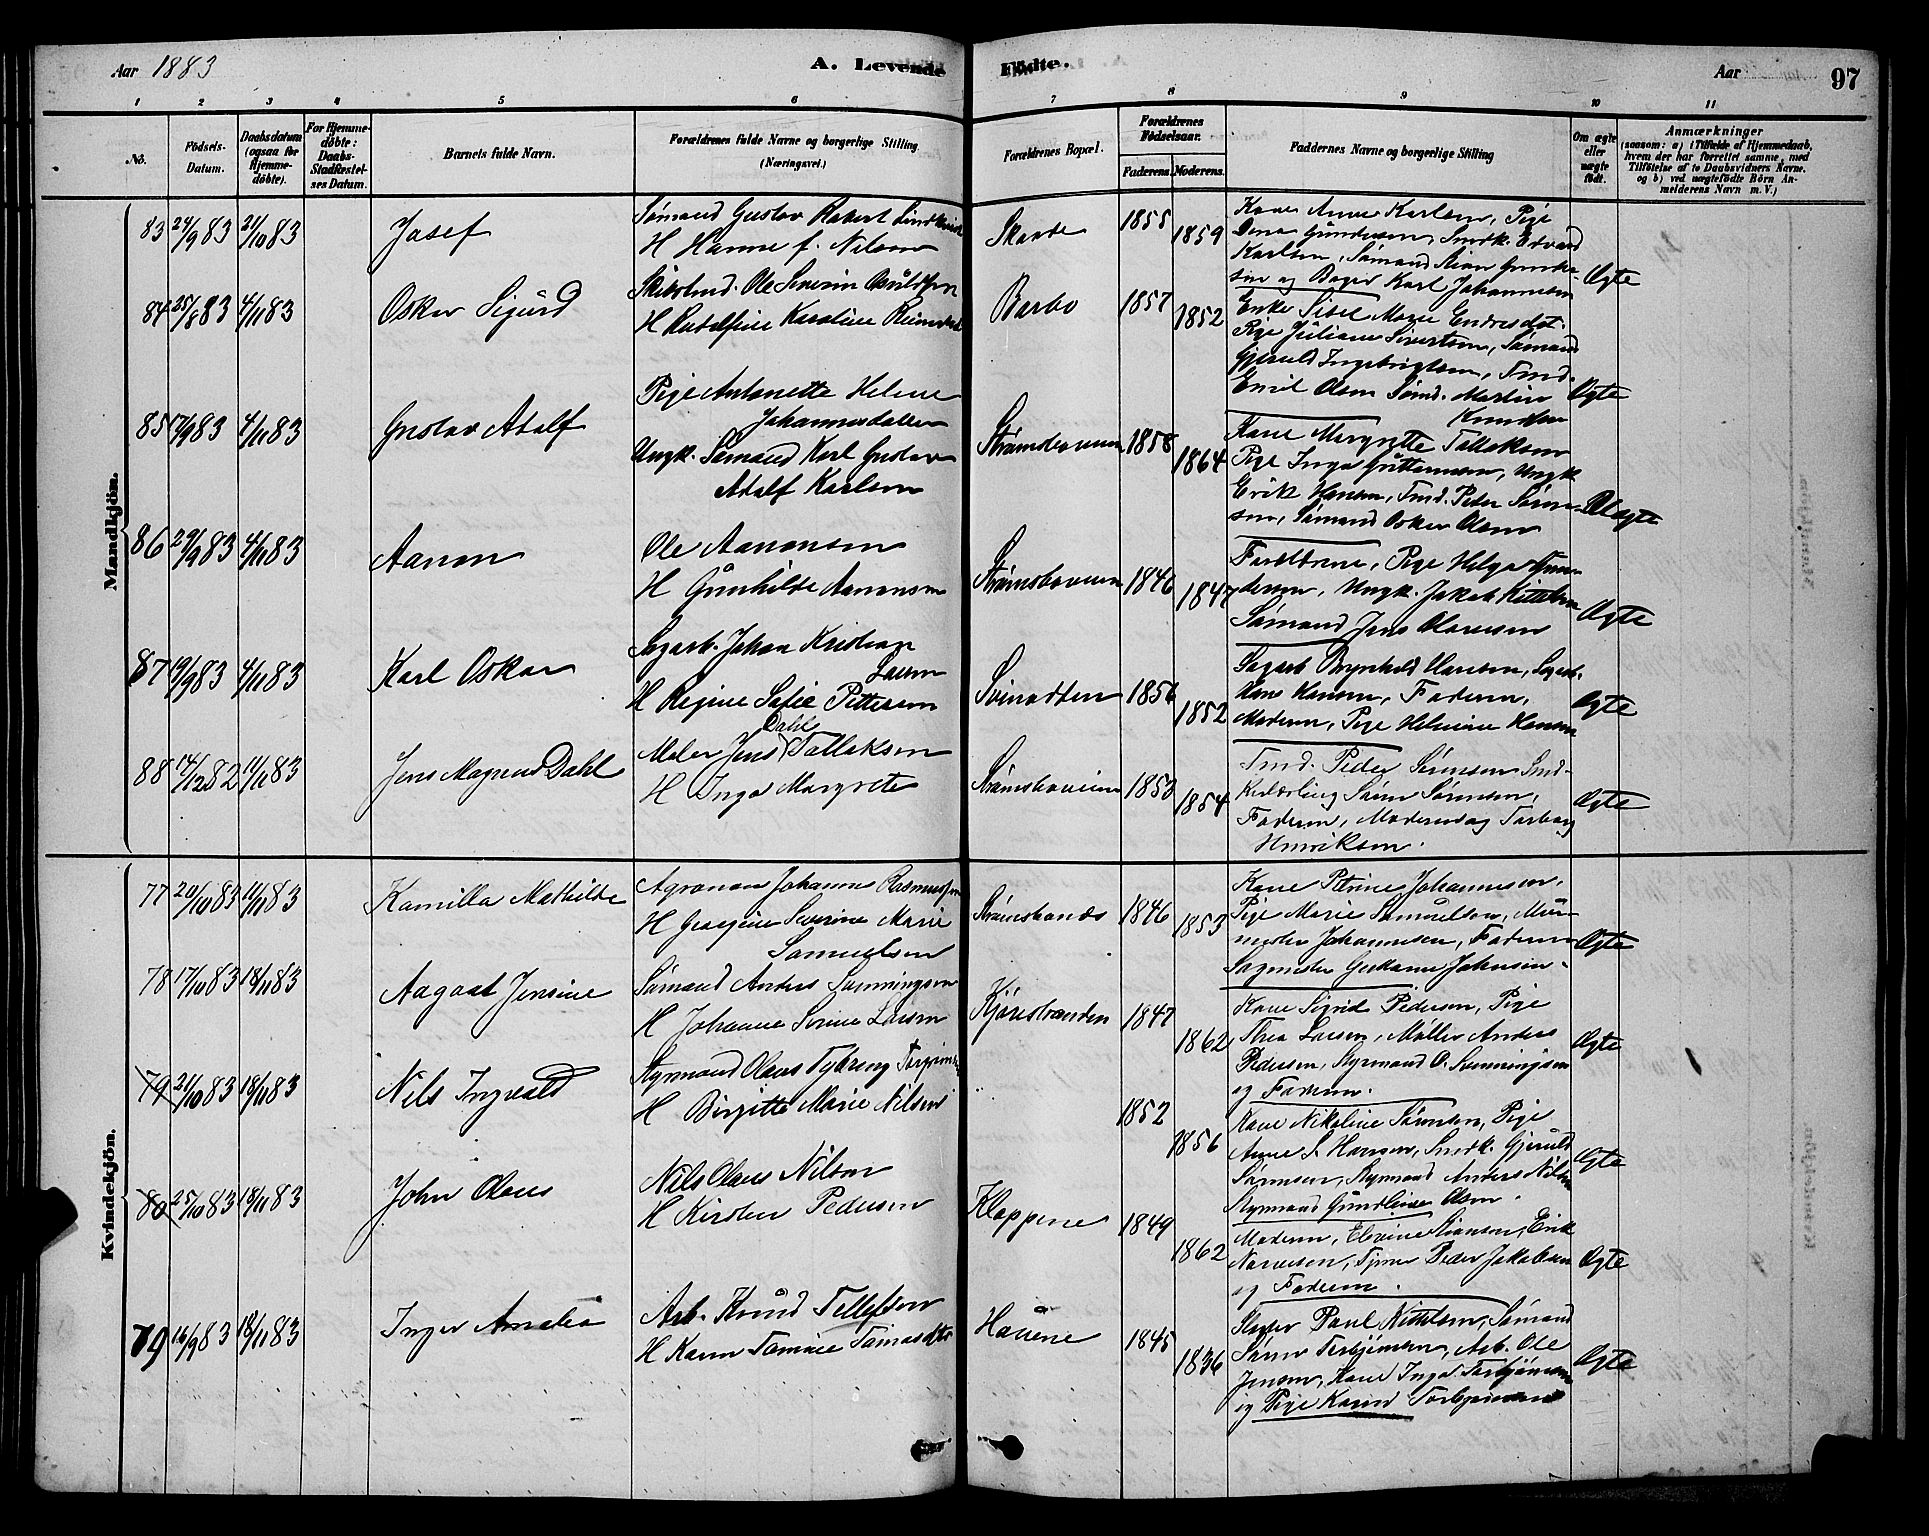 Aar 1883
A. Levende Födte.
Aar
97
1 2 3 4 5 6 7 8 9 10 11
No.
Födsels-Datum.
Daabsdatum (ogsaa for Hjemme-döbte).
For Hjemme-döbte: Daabs-Stadfæstel-ses Datum.
Barnets fulde Navn.
Forældrenes fulde Navne og borgerlige Stilling
(Næringsvei.)
Forældrenes Bopæl.
Forældrenes Födselsaar.
Faderens. Moderens.
Faddernes Navne og borgerlige Stilling
Om ægte eller uægte født.
Anmærkninger
(saasom: a) i Tilfælde af Hjemmedaab, hvem der har forrettet samme, med Tilföielse af to Daabsvidners Navne. og b) ved uægtefödte Börn An-melderens Navn m. V.)
Mandkjön.
83 24/9 83 21/10 83
Josef
Sømand Gustav Robert
H Hanne f. Nilsen
1855
1859
Kone Anne Karlsen, Pige
Dina Gundersen, Snedk. Edvard
Karlsen, Sømand
og Bager Karl Johannesen
Ægte
84 25/8 83 4/11 83
Oskar Sigurd
Ole Severin
H Rudolfine Karoline
Barbo
1857
1852
Enke Sisel Marie Endresdot.
Pige Juliane Sivertsen, Sømand
Gjeruld Ingebrigtsen, Tmd.
Emil Olsen Sømd. Martin
Knudsen
Ægte
85 17/9 83 4/11 83
Gustav Adolf
Pige Antonette Helene
Johannesdatter
Ungk. Sømand Karl Gustav
Adolf Karlsen
Strømsbouen
1858
1864
Kone Margrette Tallaksen
Pige Inga Guttormsen, Ungk
Erik Hansen, Tmd. Peder Søren-
sen, Sømand Oskar Olsen
Uægte
86 29/9 83 4/11 83
Aanon
Ole Aanonsen
H Gunhilde Aanonsen
Strømsbouen
1846
1847
Forældrene, Pige Helga Gun-
dersen, Ungk. Jakob Kittelsen
Sømand Jens Olavesen
Ægte
87 19/9 83 4/11 83
Karl Oskar
Sagarb. Johan Kristian
Larsen
H Regine Sofie Pettersen
Svinodden
1856
1852
Sagarb Brynhild Hansen, Sagarb.
Hans Hansen, Faderen,
Moderen, Pige Helmine Hansen
Ægte
88 14/12 82 11/11 83
Jens Magnus Dahl
Maler Jens Dahl Tallaksen
H Inga Margrete
Strømsbouen
1853
1854
Tmd. Peder Sørensen Smd-
Søren Sørensen,
Faderen, Moderen og Torborg
Henriksen.
Ægte
Kvindekjön.
77 20/10 83 11/11 83
Kamilla Mathilde
Agronom Johannes Rasmussen
H Georgine Severine Marie
Samuelsen
Strømsbonds
1846
1853
Kone Petrine Johannesen,
Pige Marie Samuelsen, Mur-
mester Johannesen, Faderen
Sagmester Johnsen
Ægte
78 17/10 83 18/11 83
Aagaat Jensine
Sømand Anders Sunningsen
H Johanne Serine Larsen
Kjørestranden
1847
1862
Kone Sigrid Pedersen, Pige
Thea Larsen, Møller Anders
Pedersen, Styrmand O. Sunningsen
og Faderen.
Ægte
79 21/10 83 18/11 83
Nils Ingvald
Styrmand Olaus
H Birgitte Marie Nilsen
"
1852
1856
Kone Nikoline Sørensen, Pige
Anne S. Hansen, Snedk. Gjeruld
Sørensen, Styrmand Anders Nilsen
Styrmand Olsen.
Ægte
80 25/10 83 18/11 83
John Olaus
Nils Olaus Nilsen
H Kirsten Pedersen
Kloppene
1849
1862
Moderen, Stiansen, Erik
Tjener Peder Jakobsen
og Faderen.
Ægte
79 16/9 83 18/11 83
Inger Amalia
Arb. Knud Tellefsen
H Karen Tomine
Hauene
1845
1836
Paul Nittelsen, Sømand
Søren Torbjørnsen, Arb. Ole
Jensen, Kone Inga Torbjørnsen
og Pige Karen
Ægte